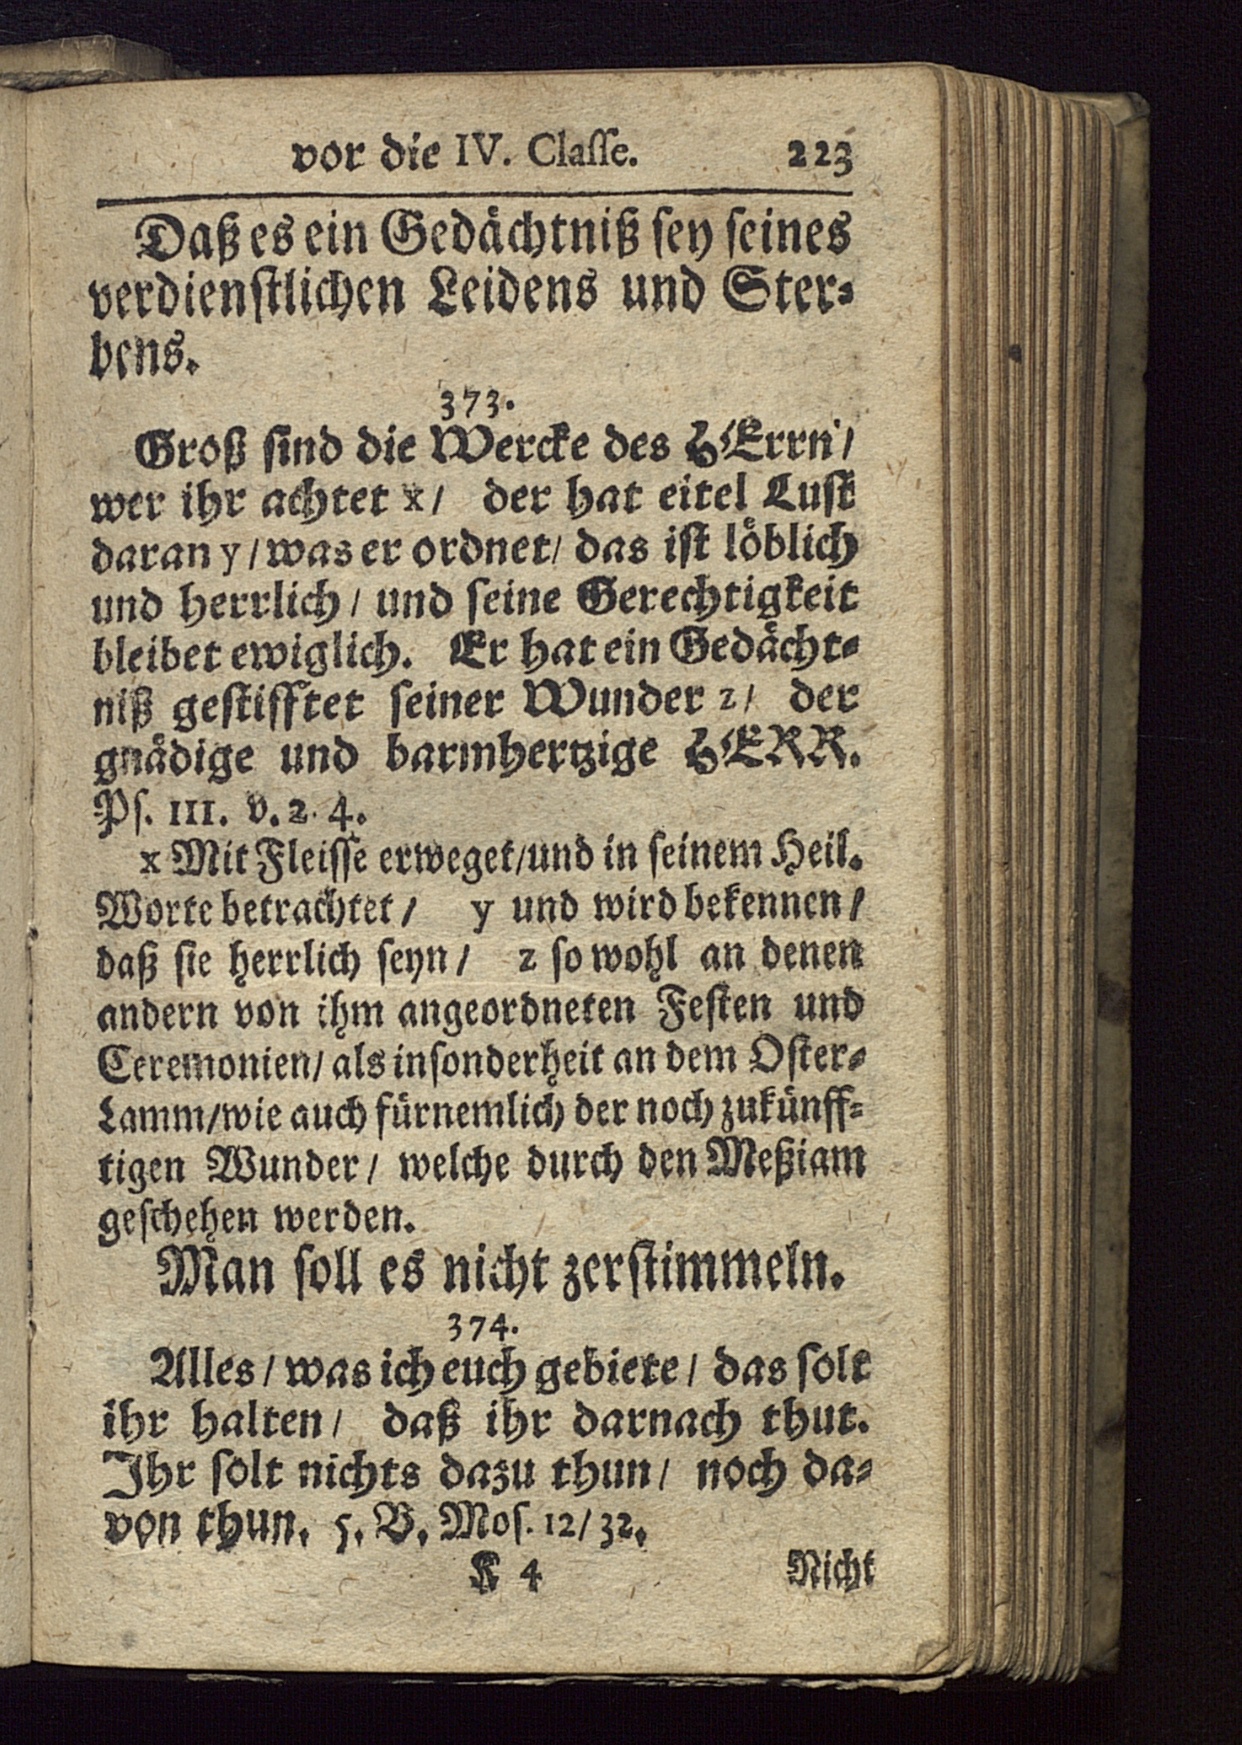 vor die IV. Claſſe. 223
Daß es ein Gedächtniß ſey ſeines
verdienſtlichen Leidens und Ster⸗
bens.
373.
Groß ſind die Wercke des HErrn/
wer ihr achtet x/ der hat eitel Luſt
daran y/ was er ordnet/ das iſt löblich
und herrlich/ und ſeine Gerechtigkeit
bleibet ewiglich. Er hat ein Gedächt⸗
niß geſtifftet ſeiner Wunder z/ der
gnädige und barmhertzige HERR.
Pſ. III. v. 2. 4.
x Mit Fleiſſe erweget/und in ſeinem Heil.
Worte betrachtet/ y und wird bekennen/
daß ſie herrlich ſeyn/ z ſo wohl an denen
andern von ihm angeordneten Feſten und
Ceremonien/ als inſonderheit an dem Oſter⸗
Lamm/wie auch fürnemlich der noch zukünff⸗
tigen Wunder/ welche durch den Meßiam
geſchehen werden.
Man ſoll es nicht zerſtimmeln.
374.
Alles/ was ich euch gebiete/ das ſolt
ihr halten/ daß ihr darnach thut.
Ihr ſolt nichts dazu thun/ noch da⸗
von thun. 5. B. Moſ. 12/32.
K 4 Nicht